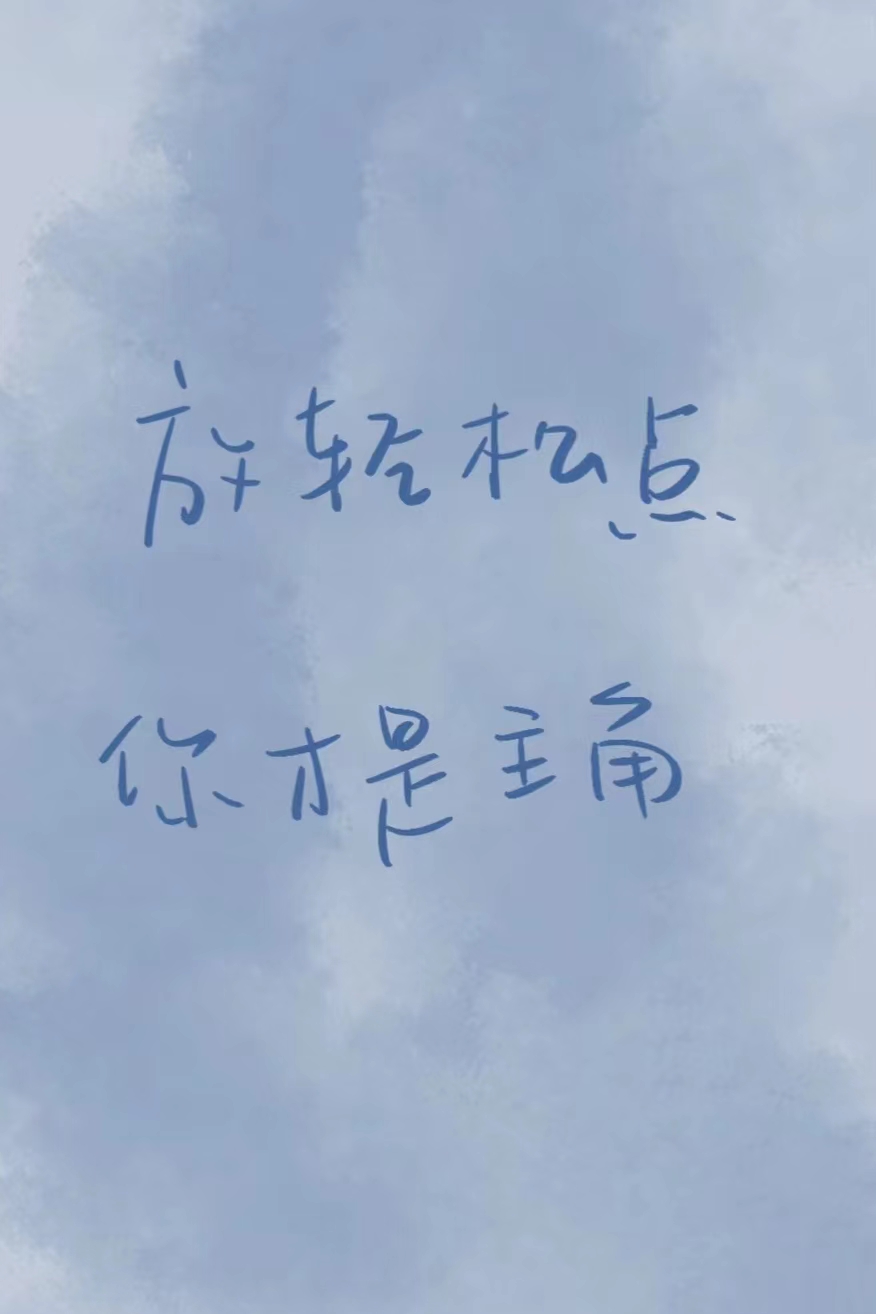 放轻松点
你才是主角